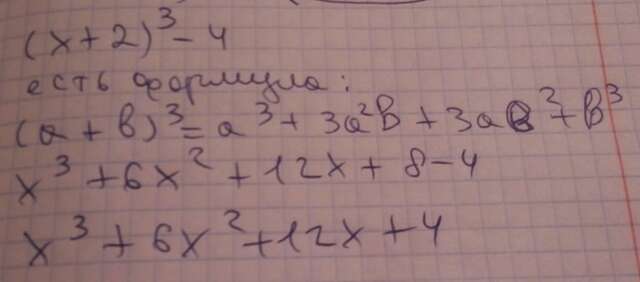 (x+2)³-4
есть формула:
(a+b)³=a³+3a²b+3ab²+b³
x³+6x²+12x+8-4
x³+6x²+12x+4